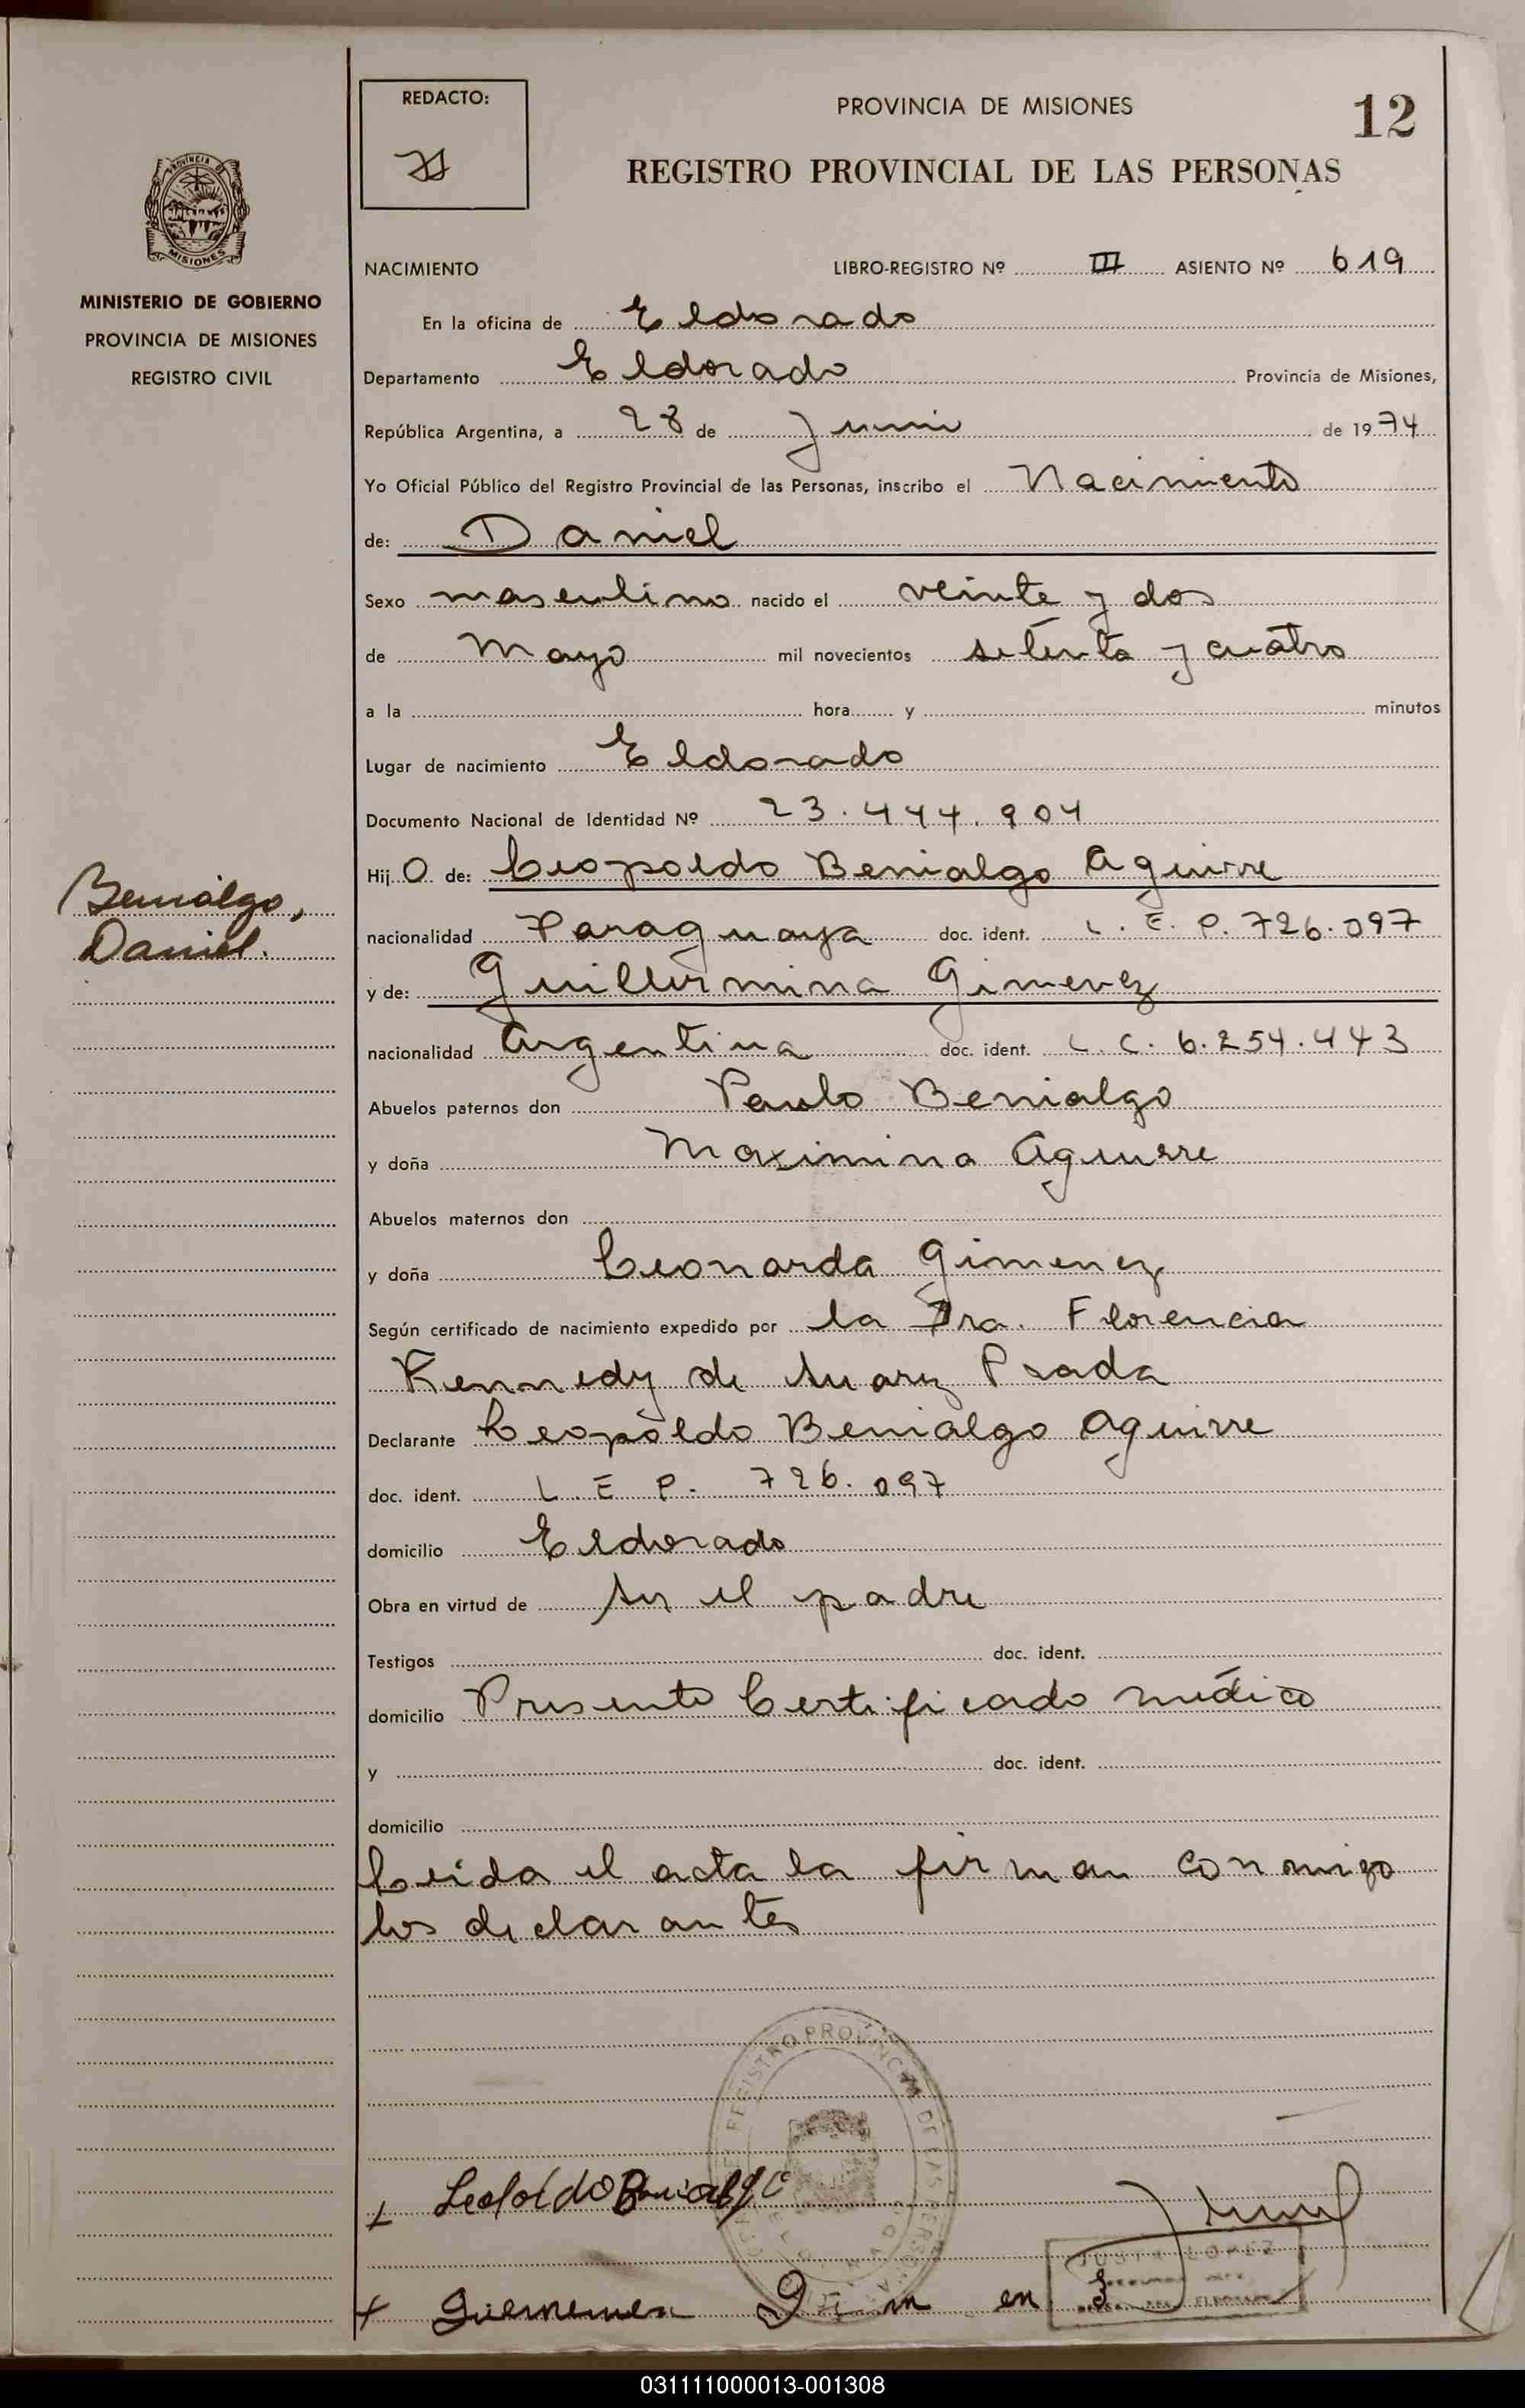 REDACTO:
PROVINCIA DE MISIONES
12
REGISTRO PROVINCIAL DE LAS PERSONAS
PROVINCIA D
MISIONES
MINISTERIO DE GOBIERNO
PROVINCIA DE MISIONES
REGISTRO CIVIL
NACIMIENTO LIBRO-REGISTRO Nº III ASIENTO Nº 619
En la oficina de Eldorado
Departamento Eldorado Provincia de Misiones,
República Argentina, a 28 de Junio de 1974
Yo Oficial Público del Registro Provincial de las Personas, inscribo el Nacimiento
de: Daniel
Sexo masculino nacido el veinte y dos
de Mayo mil novecientos setenta y cuatro
a la hora y minutos
Lugar de nacimiento Eldorado
Documento Nacional de Identidad Nº 23.444.904
Hijo de: Leopoldo Benialgo Aguirre
Benialgo,
Daniel.
nacionalidad Paraguaya doc. ident. L. E. P. 726.097
y de: Guillermina Gimenez
nacionalidad Argentina doc. ident. L. C. 6.254.443
Abuelos paternos don Paulo Benialgo
y doña Maximina Aguirre
Abuelos maternos don
y doña Leonarda Gimenez
Según certificado de nacimiento expedido por la Dra. Florencia
Kennedy de Suarez Prada
Declarante Leopoldo Benialgo Aguirre
doc. ident. L. E P. 726.097
domicilio Eldorado
Obra en virtud de Ser el padre
Testigos doc. ident.
domicilio Presento Certificado médico
y doc. ident.
domicilio
Leida el acta la firman conmigo
los declarantes
REGISTRO PROVINCIAL DE LAS PERSONAS
Leopoldo Benialgo
JUSTA LOPEZ
031111000013-001308